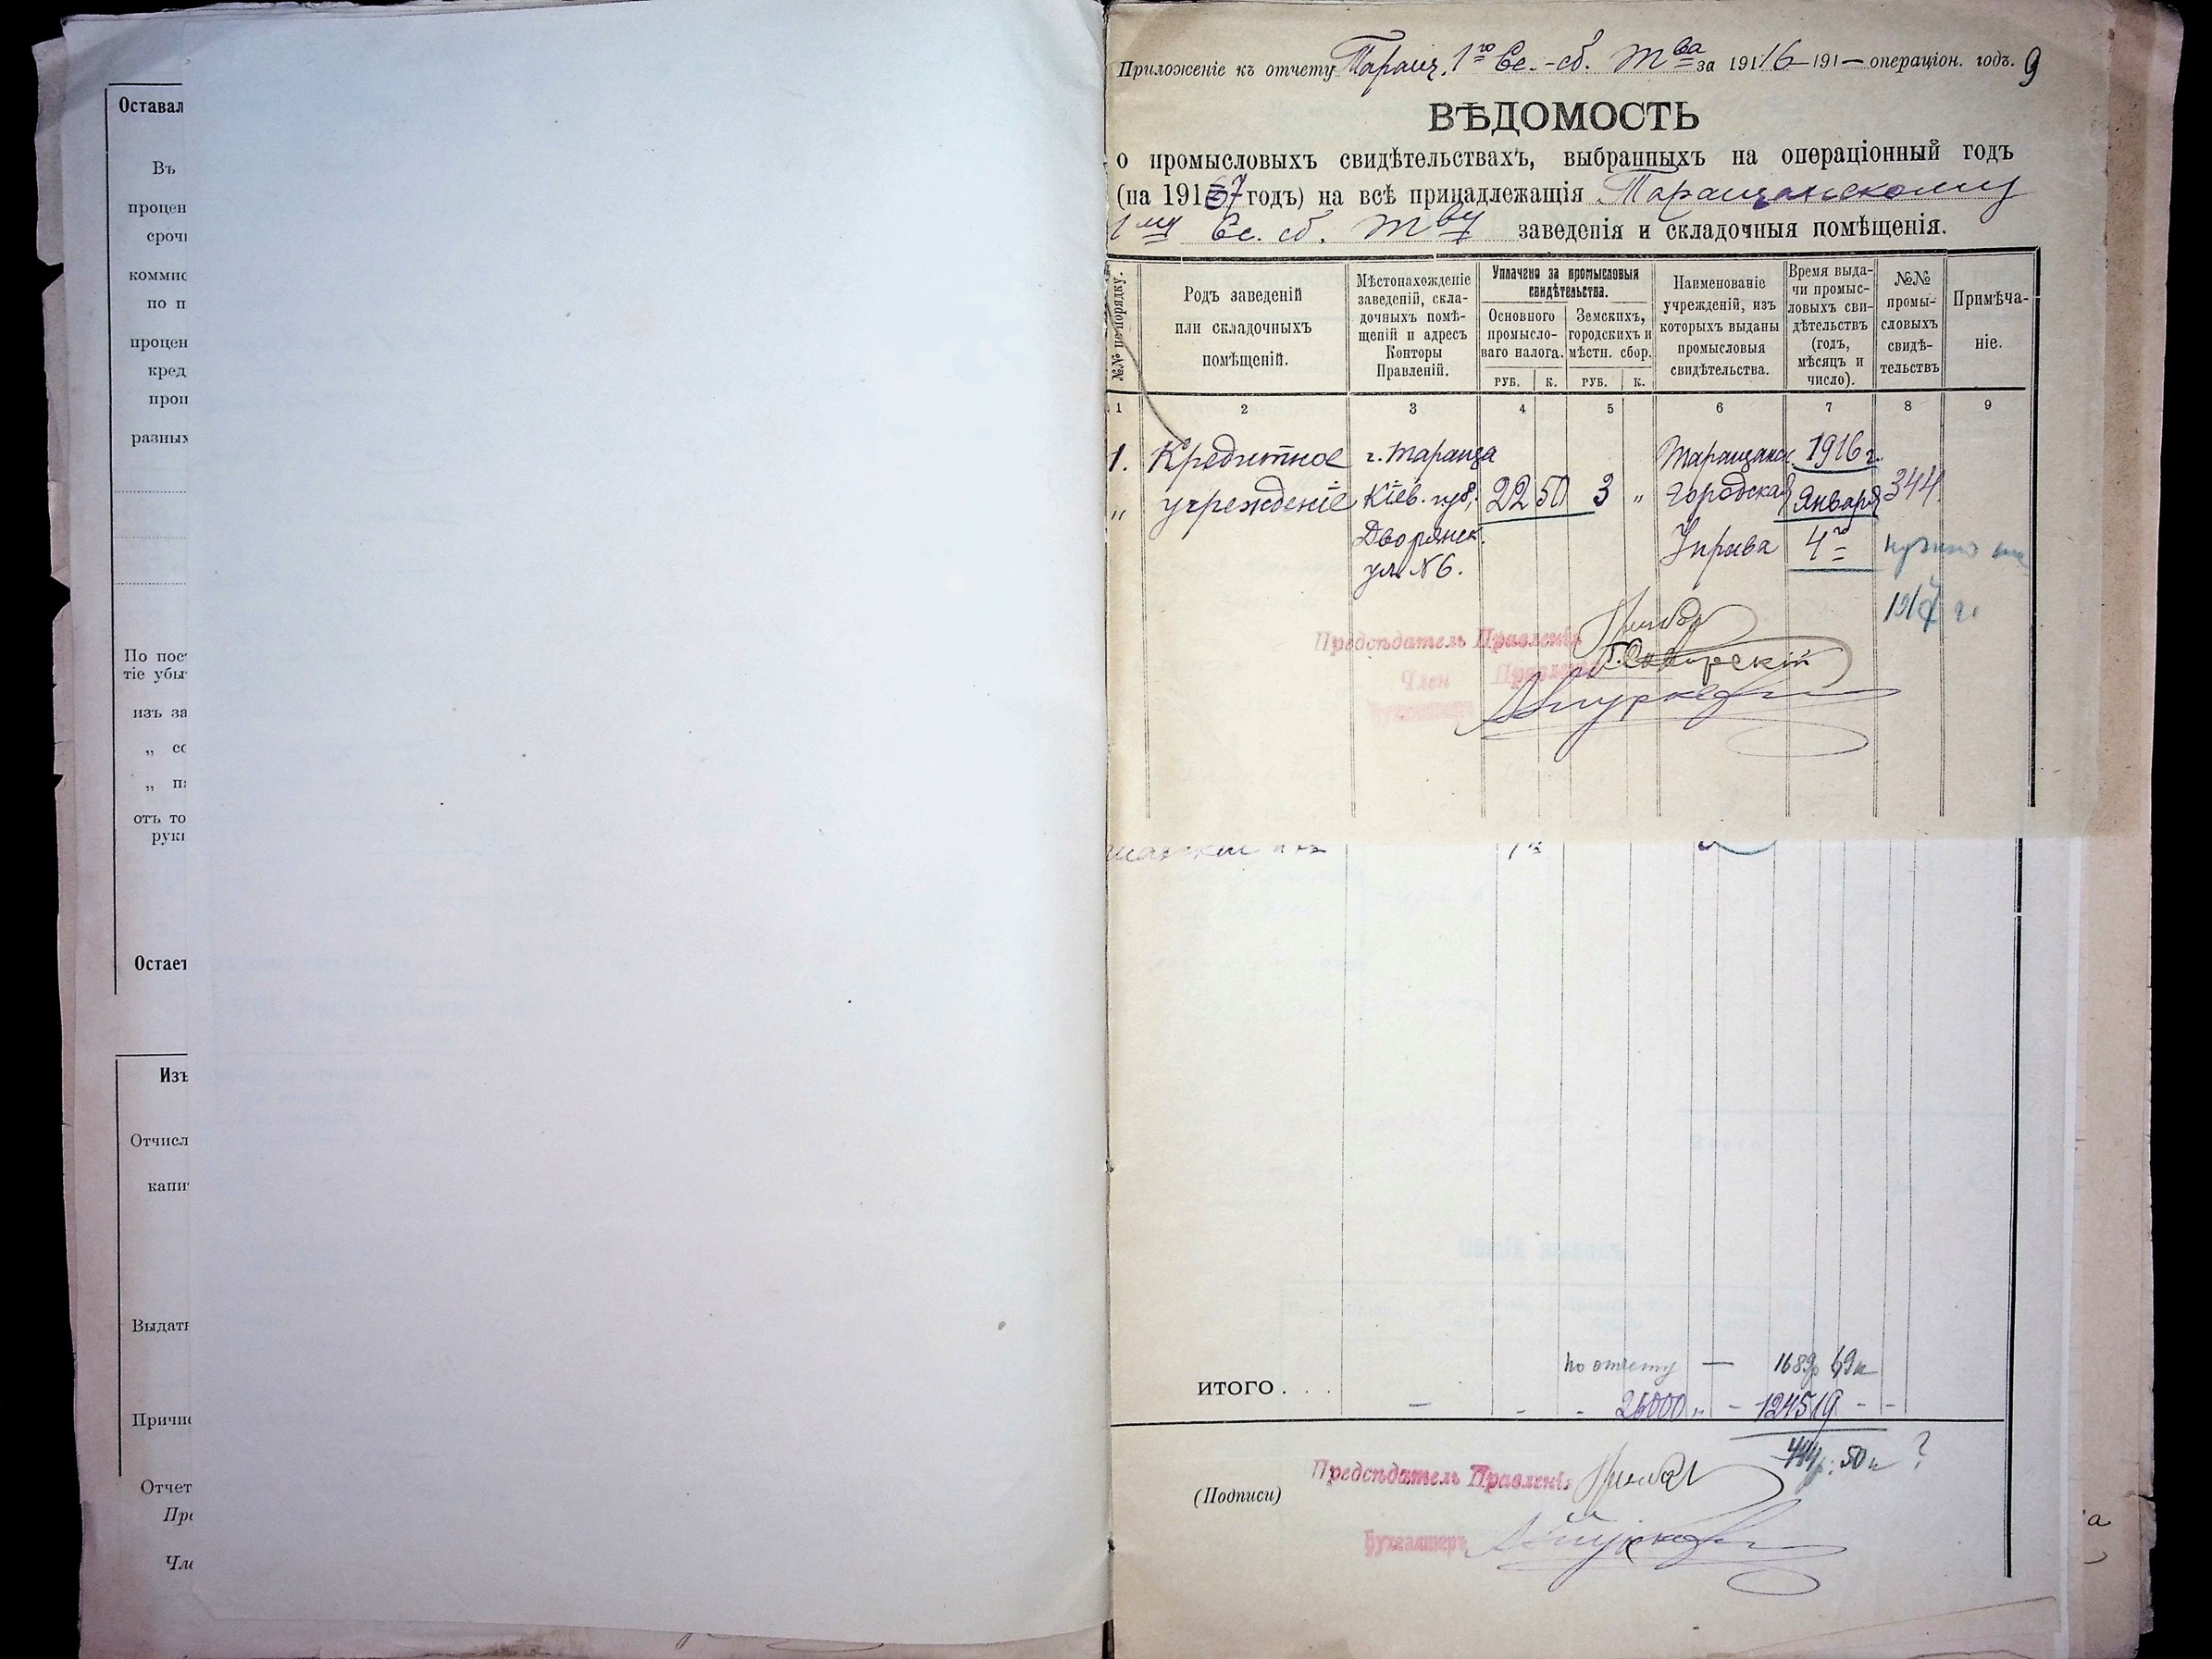 Оставал
Въ
процен
срочн
коммис
по п
процен
кред
проп
разных
По пос
тіе убы
изъ за
„ со
„ па
отъ то
рукі
Остает
Изъ
Отчисл
капи
Выдать
Причис
Отчет
Пре
Чле
Приложеніе къ отчету Таращ. 1го Сс.-сб. Тва за 191 16 — 191 — операціон. годъ. 9
ВѢДОМОСТЬ
о промысловыхъ свидѣтельствахъ, выбранныхъ на операціонный годъ
(на 191 7 годъ) на всѣ принадлежащія Таращанскому
1му Сс. сб. Тву заведенія и складочныя помѣщенія.
№№ по порядку.
Родъ заведеній
или складочныхъ
помѣщеній.
Мѣстонахожденіе
заведеній, скла-
дочныхъ помѣ-
щеній и адресъ
Конторы
Правленій.
Уплачено за промысловыя
свидѣтельства.
Основного
промысло-
ваго налога.
РУБ. К.
Земскихъ,
городскихъ и
мѣстн. сбор.
РУБ. К.
Наименованіе
учрежденій, изъ
которыхъ выданы
промысловыя
свидѣтельства.
Время выда-
чи промыс-
ловыхъ сви-
дѣтельствъ
(годъ,
мѣсяцъ и
число).
№№
промы-
словыхъ
свидѣ-
тельствъ
Примѣча-
ніе.
1 2 3 4 5 6 7 8 9
1. Кредитное г. Тараща Таращанск. 1916 г.
„ учрежденіе Кіев. губ. 22 50 3 „ Городская Января 344
Дворянск. Управа 4го нужно на
ул. №6.
1917 г.
Предсѣдатель Правленія
Член Правленія
Бухгалтеръ
по отчету — 1689р 69к
ИТОГО . . . - - - 26000 „ - 1245 19 - -
444р. 50к ?
Предсѣдатель Правленія
(Подписи)
Бухгалтеръ